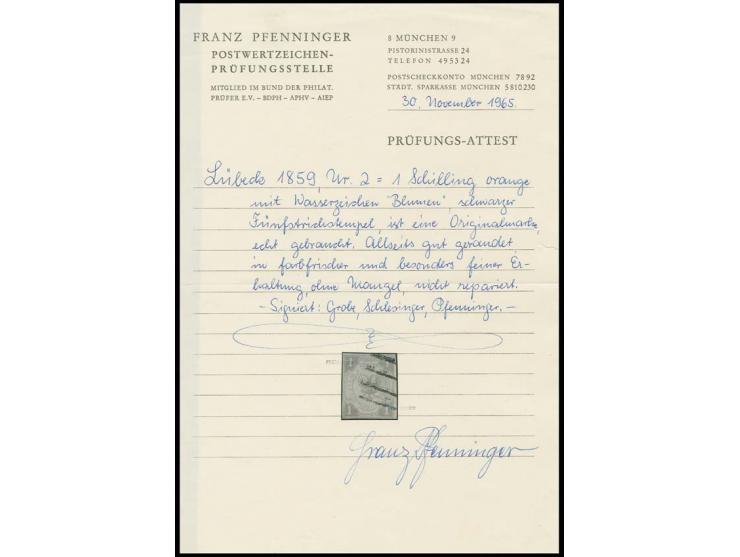 FRANZ PFENNINGER
POSTWERTZEICHEN-
PRÜFUNGSSTELLE
MITGLIED IM BUND DER PHILAT.
PRÜFER E.V. – BDPH – APHV – AIEP
8 MÜNCHEN 9
PISTORINISTRASSE 24
TELEFON 49 53 24
POSTSCHECKKONTO MÜNCHEN 78 92
STÄDT. SPARKASSE MÜNCHEN 5 810.230
30. November 1965.
PRÜFUNGS-ATTEST
Lübeck 1859, Nr. 2 = 1 Schilling orange
mit Wasserzeichen "Blumen", schwarzer
Fünfstrichstempel, ist eine Originalmarke,
echt gebraucht. Allseits gut gerandet,
in farbfrischer und besonders feiner Er-
haltung, ohne Mängel, nicht repariert.
- Signiert: Grobe, Schlesinger, Pfenninger. -
1 1
1 1
Franz Pfenninger